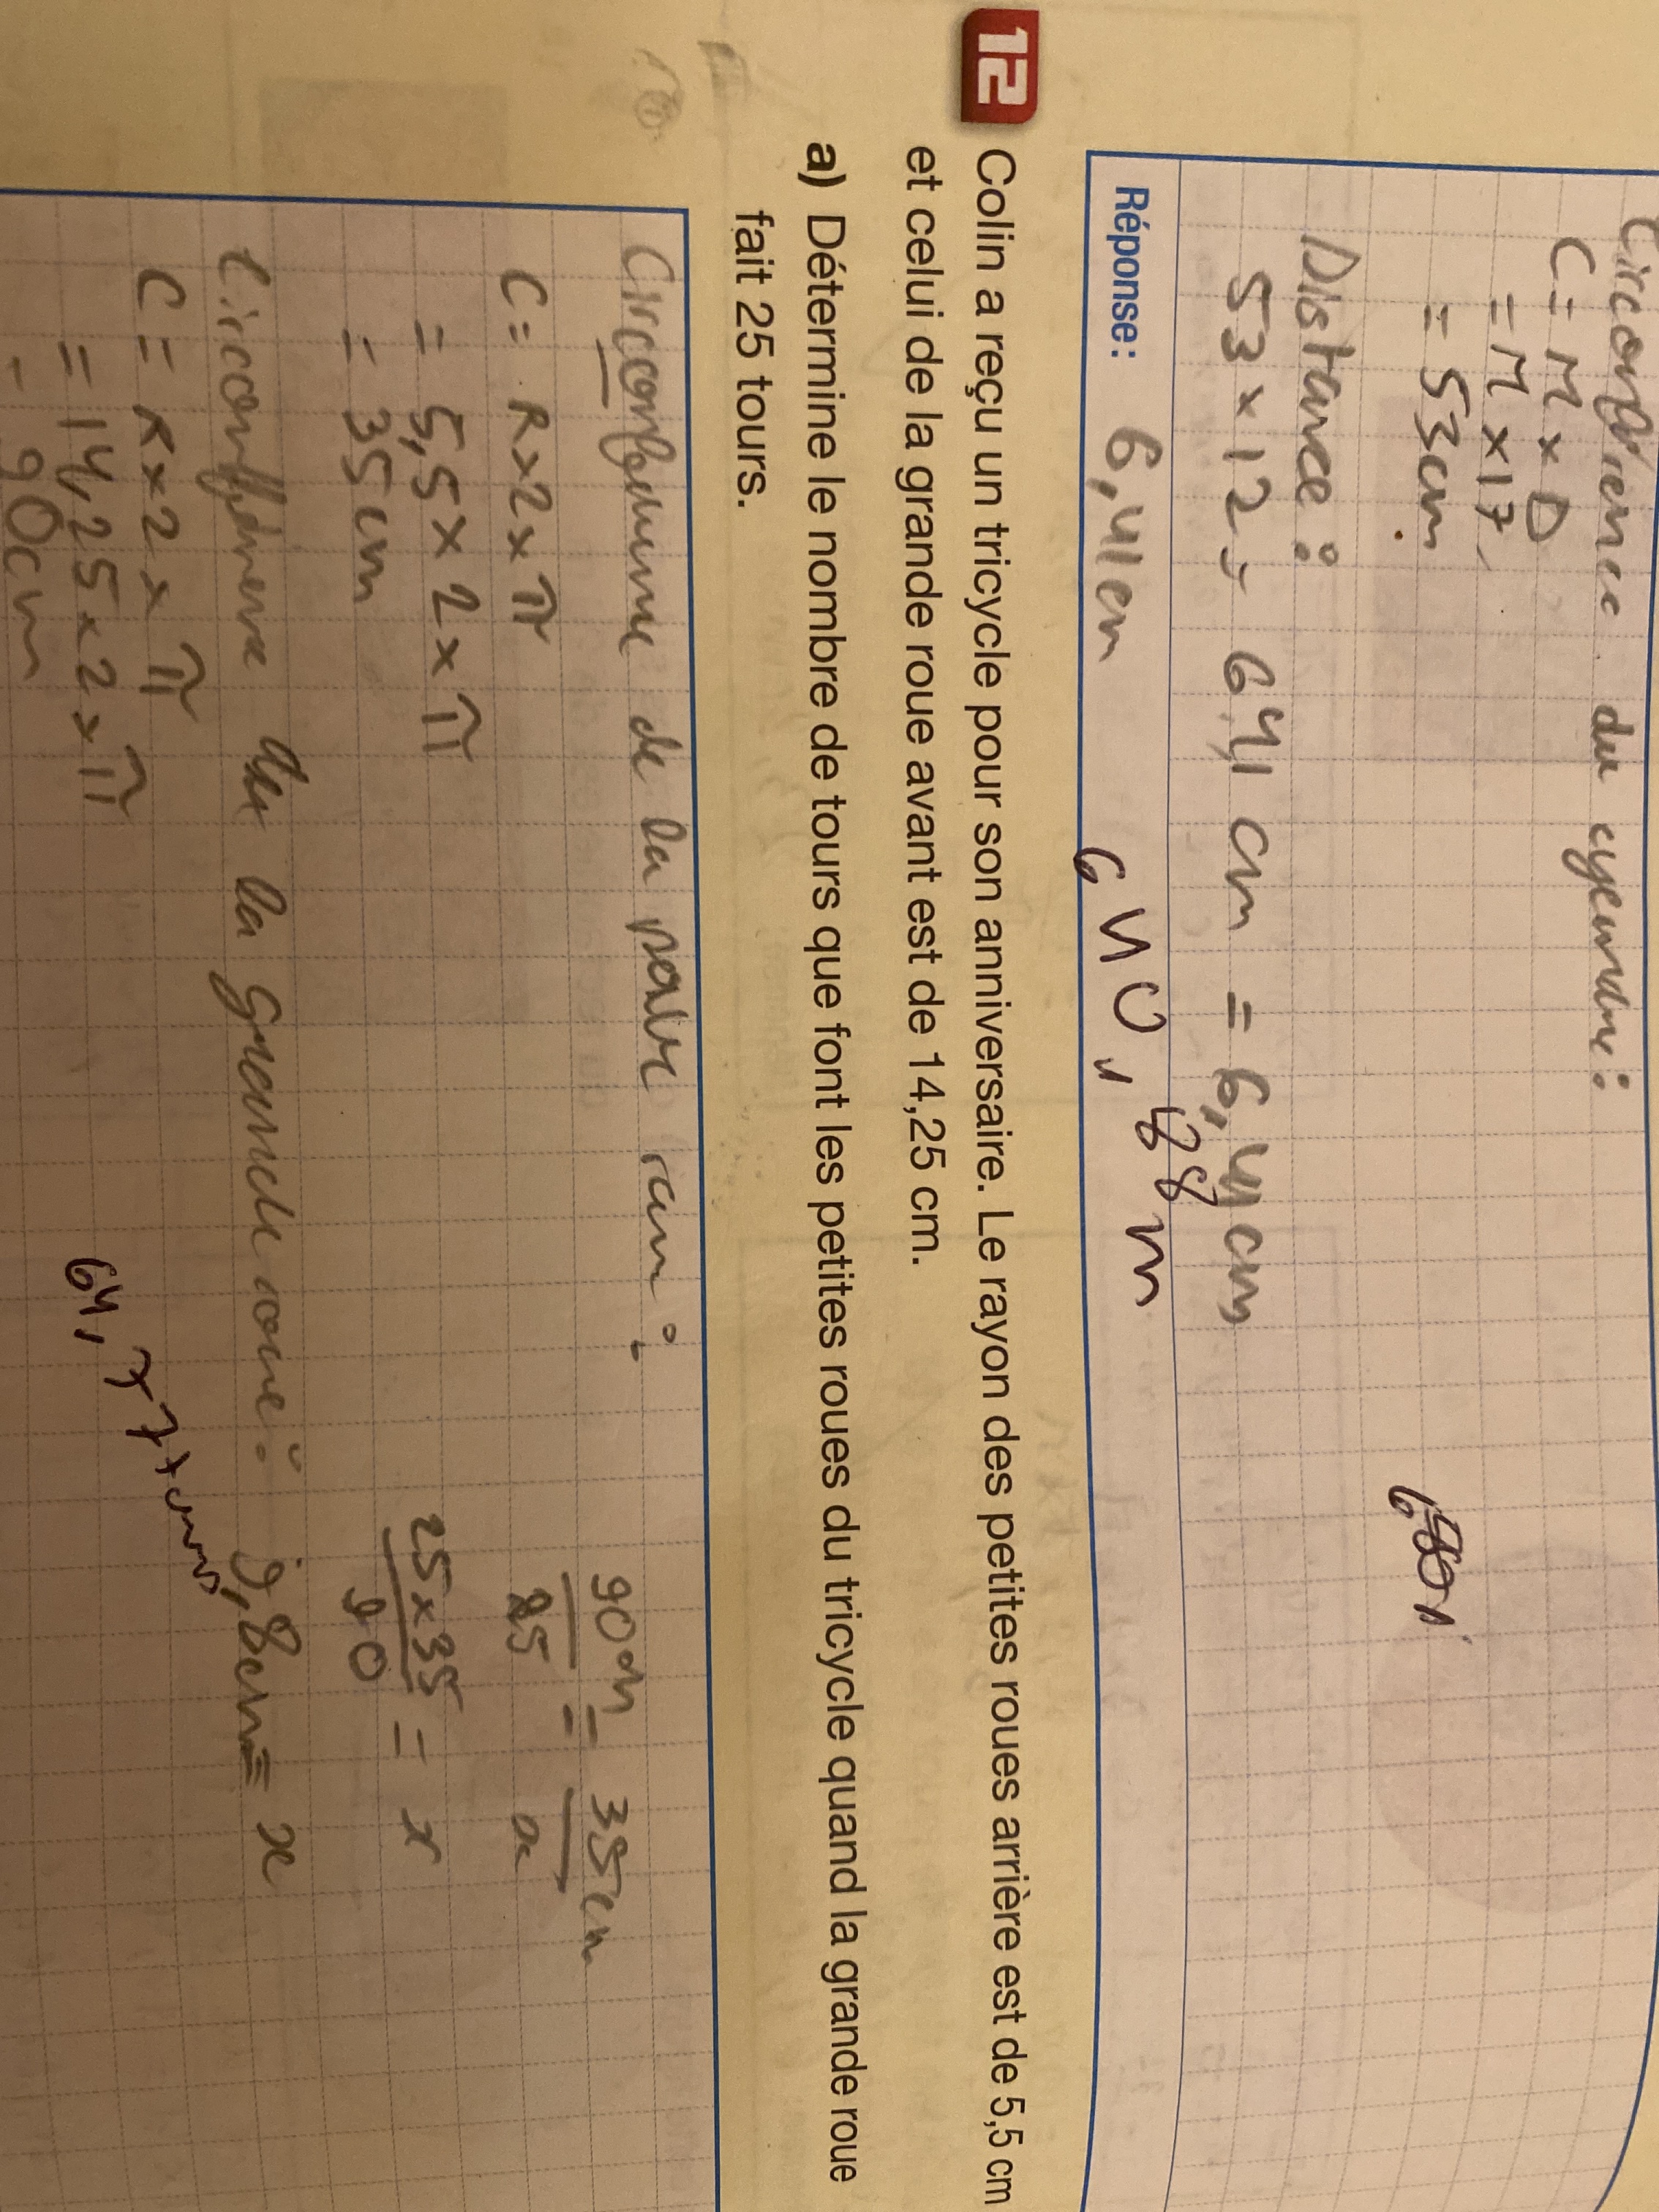 Circonférence du cylindre :
C = π x D
= π x 17
= 53cm
Distance :
53 x 12 = 641 cm = 6,41 cm
Réponse : 6,41cm 640,88 m
12 Colin a reçu un tricycle pour son anniversaire. Le rayon des petites roues arrière est de 5,5 cm
et celui de la grande roue avant est de 14,25 cm.
a) Détermine le nombre de tours que font les petites roues du tricycle quand la grande roue
fait 25 tours.
de la
C = R x 2 x π
= 5,5 x 2 x π
= 35 cm
Circonférence de la grande roue :
C = R x 2 x π
= 14,25 x 2 x π
= 90cm
90cm = 35cm
25 x
25 x 35 = x
90
9,8cm = x
64,77 tours